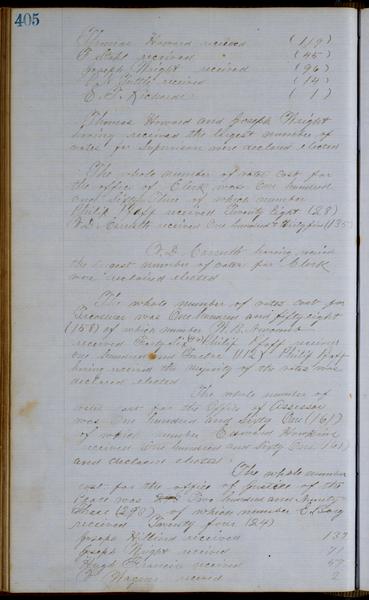 405
Thomas Howard received (119)
received (45)
Joseph Wright received (96)
Tuttle received (14)
E. T. Richards (1)
Thomas Howard and Joseph Wright
having received the largest number of
votes for Supervisor were declared elected
The whole number of votes cast for
the office of Clerk was One hundred
and Sixty Three of which number
Philip Pfaff received Twenty Eight (28)
W. D. Carruth received One hundred & thirty five (135)
W. D. Carruth having received
the largest number of votes for Clerk
was declared elected
The whole number of votes cast for
Treasurer was One hundred and fifty eight
(158) of which number W. B.
received Forty Six (46) Philip Pfaff received
one hundred and Twelve (112) Philip Pfaff
having received the majority of the votes was
declared elected
The whole number of
votes cast for the Office of Assessor
was One hundred and Sixty One (161)
of which number Edwin Hawkins
received One hundred and Sixty One (161)
and declared elected
The whole number
cast for the office of Justice of the
Peace was Two hundred and Ninety
three (293) of which number E.
received Twenty four (24)
Joseph received 139
Joseph Wright received 71
Hugh Francis received 57
Wagner received 2